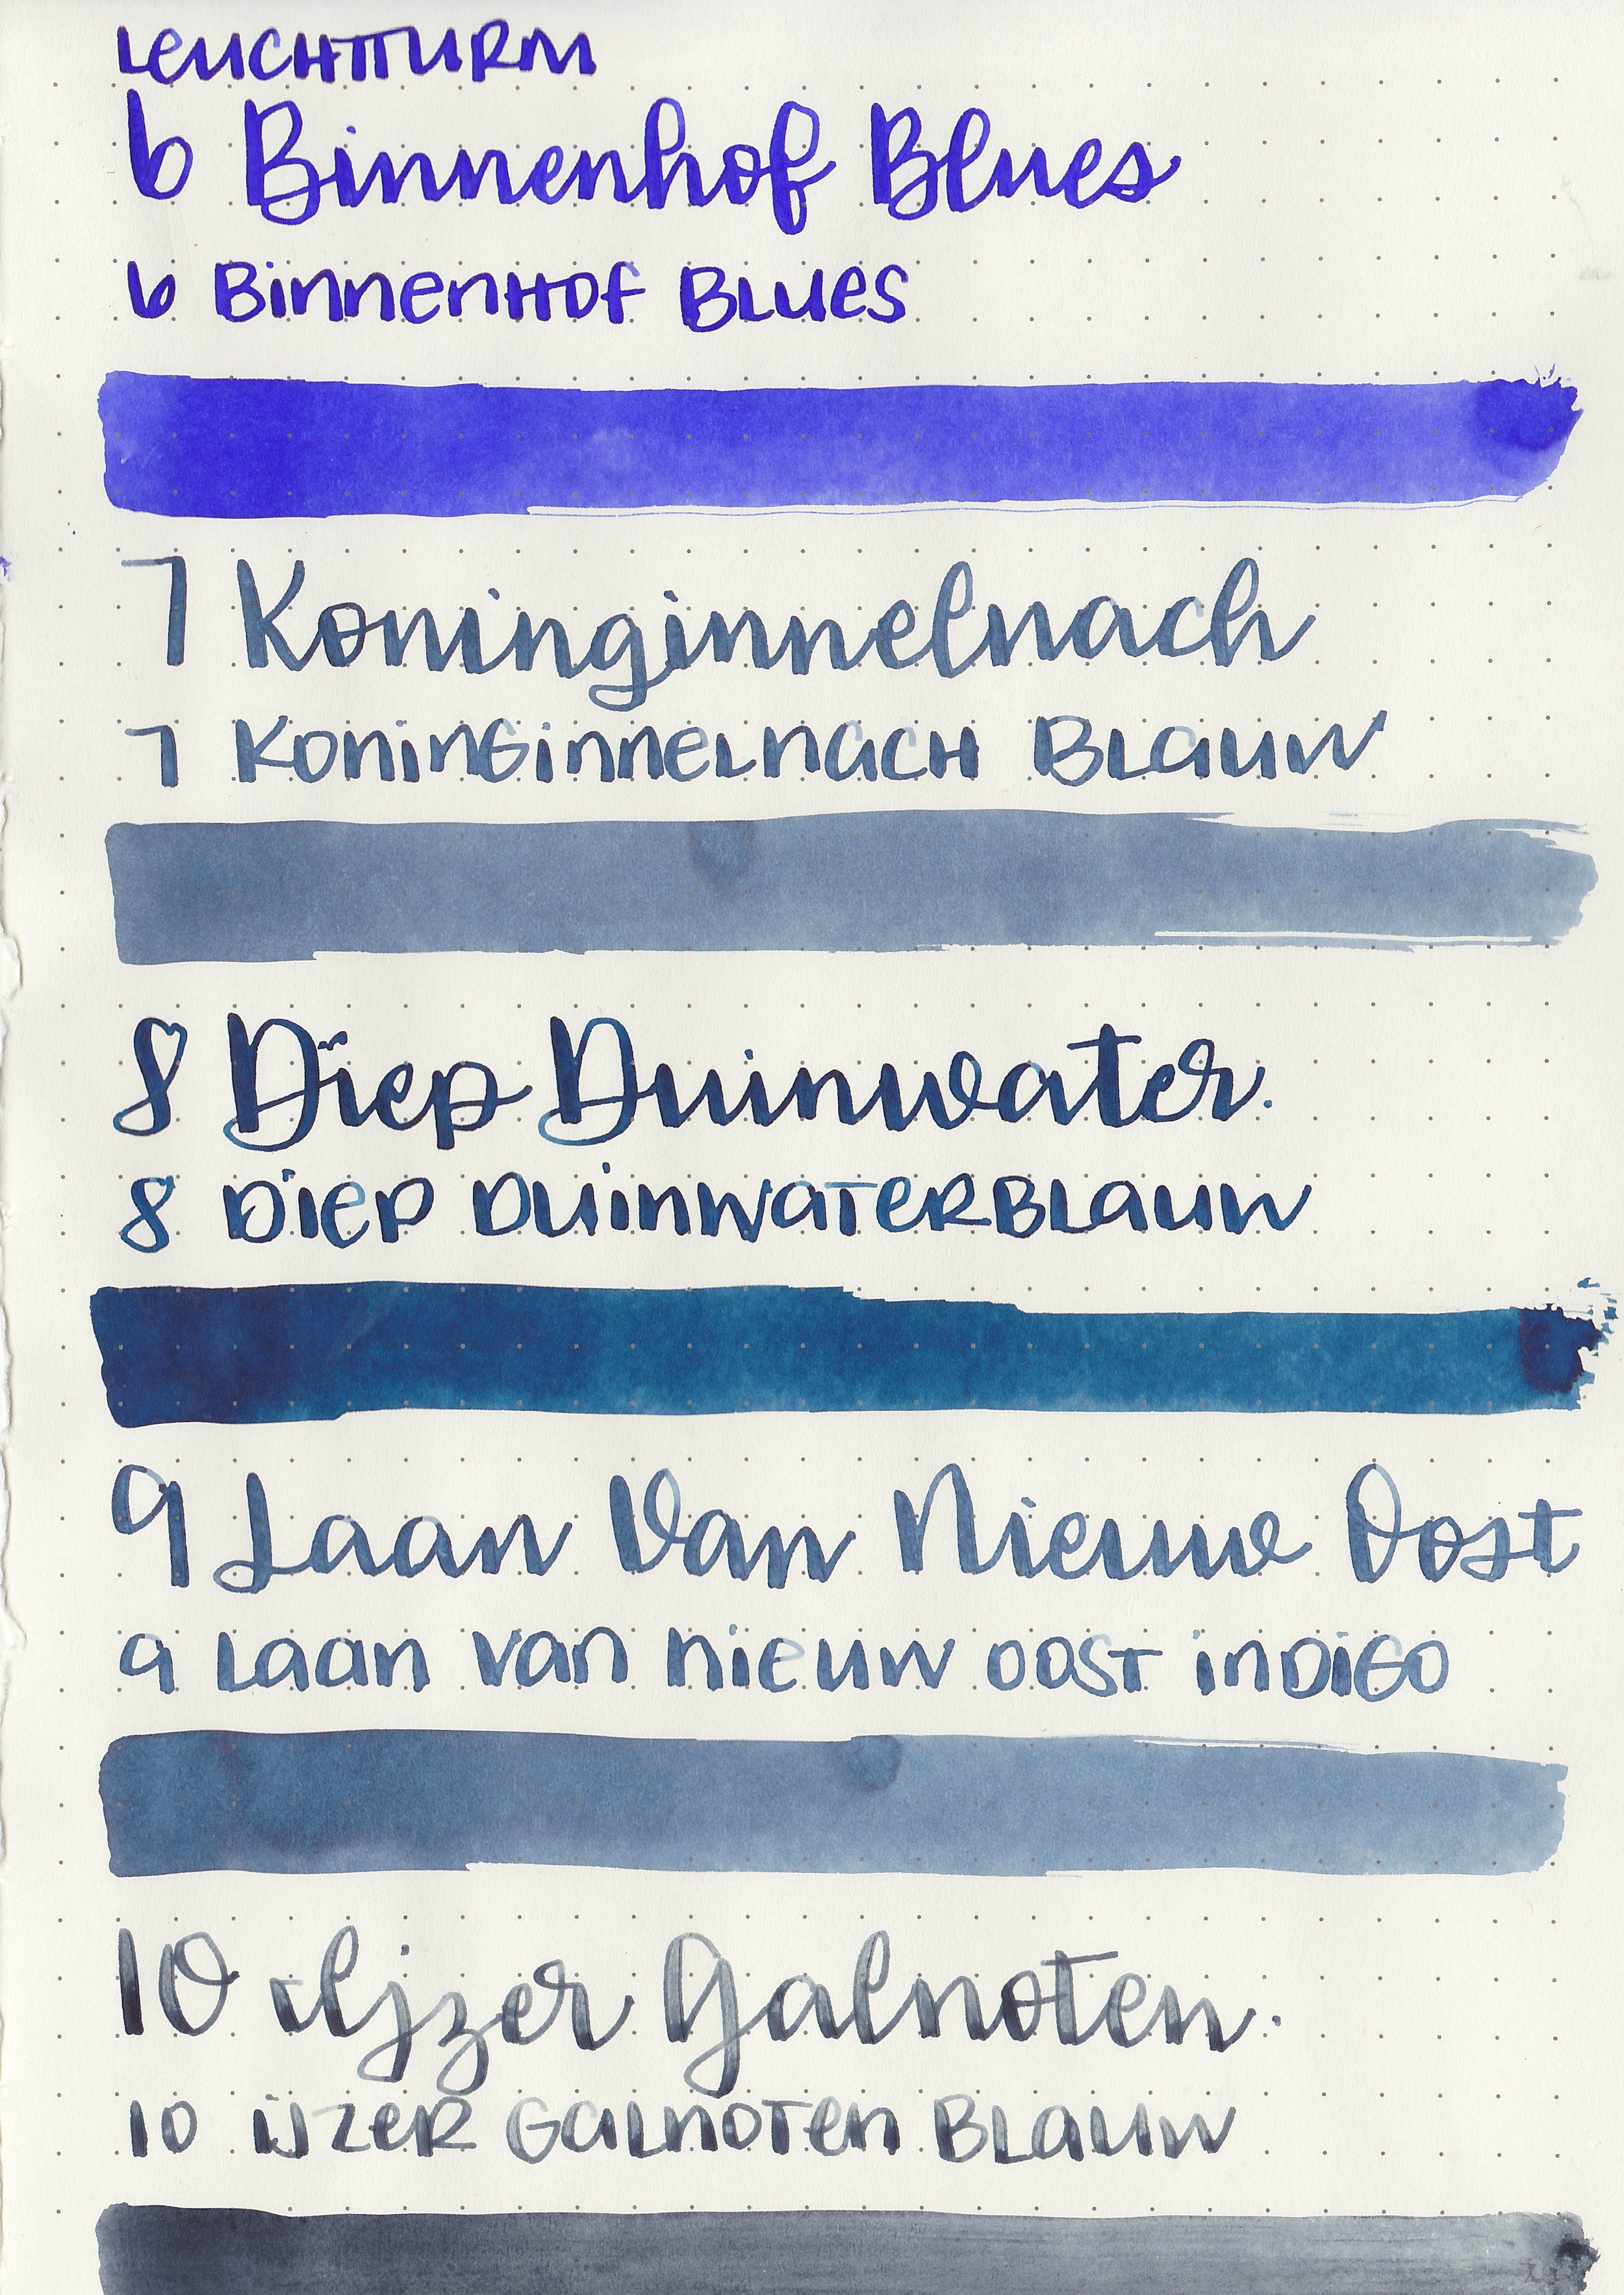 LEUCHTTURM
6 Binnenhof Blues
6 Binnenhof Blues
7 Koninginnelnach
7 Koninginnelnach Blauw
8 Diep Duinwater.
8 Diep Duinwaterblauw
9 Laan Van Nieuwe Oost
9 Laan van nieuw oost indigo
10 Ijzer Galnoten.
10 ijzer Galnoten Blauw